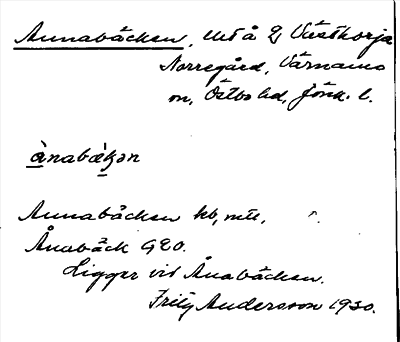 Annabäcken, utå 2/ Västhorja
Norregård, Värnamo
sn, Östbo hd, Jönk. l.
ànabæ̀ḱən
Annabäcken hb, mtl,
Ånabäck GEO.
Ligger vid Ånabäcken.
Fritz Andersson 1930.